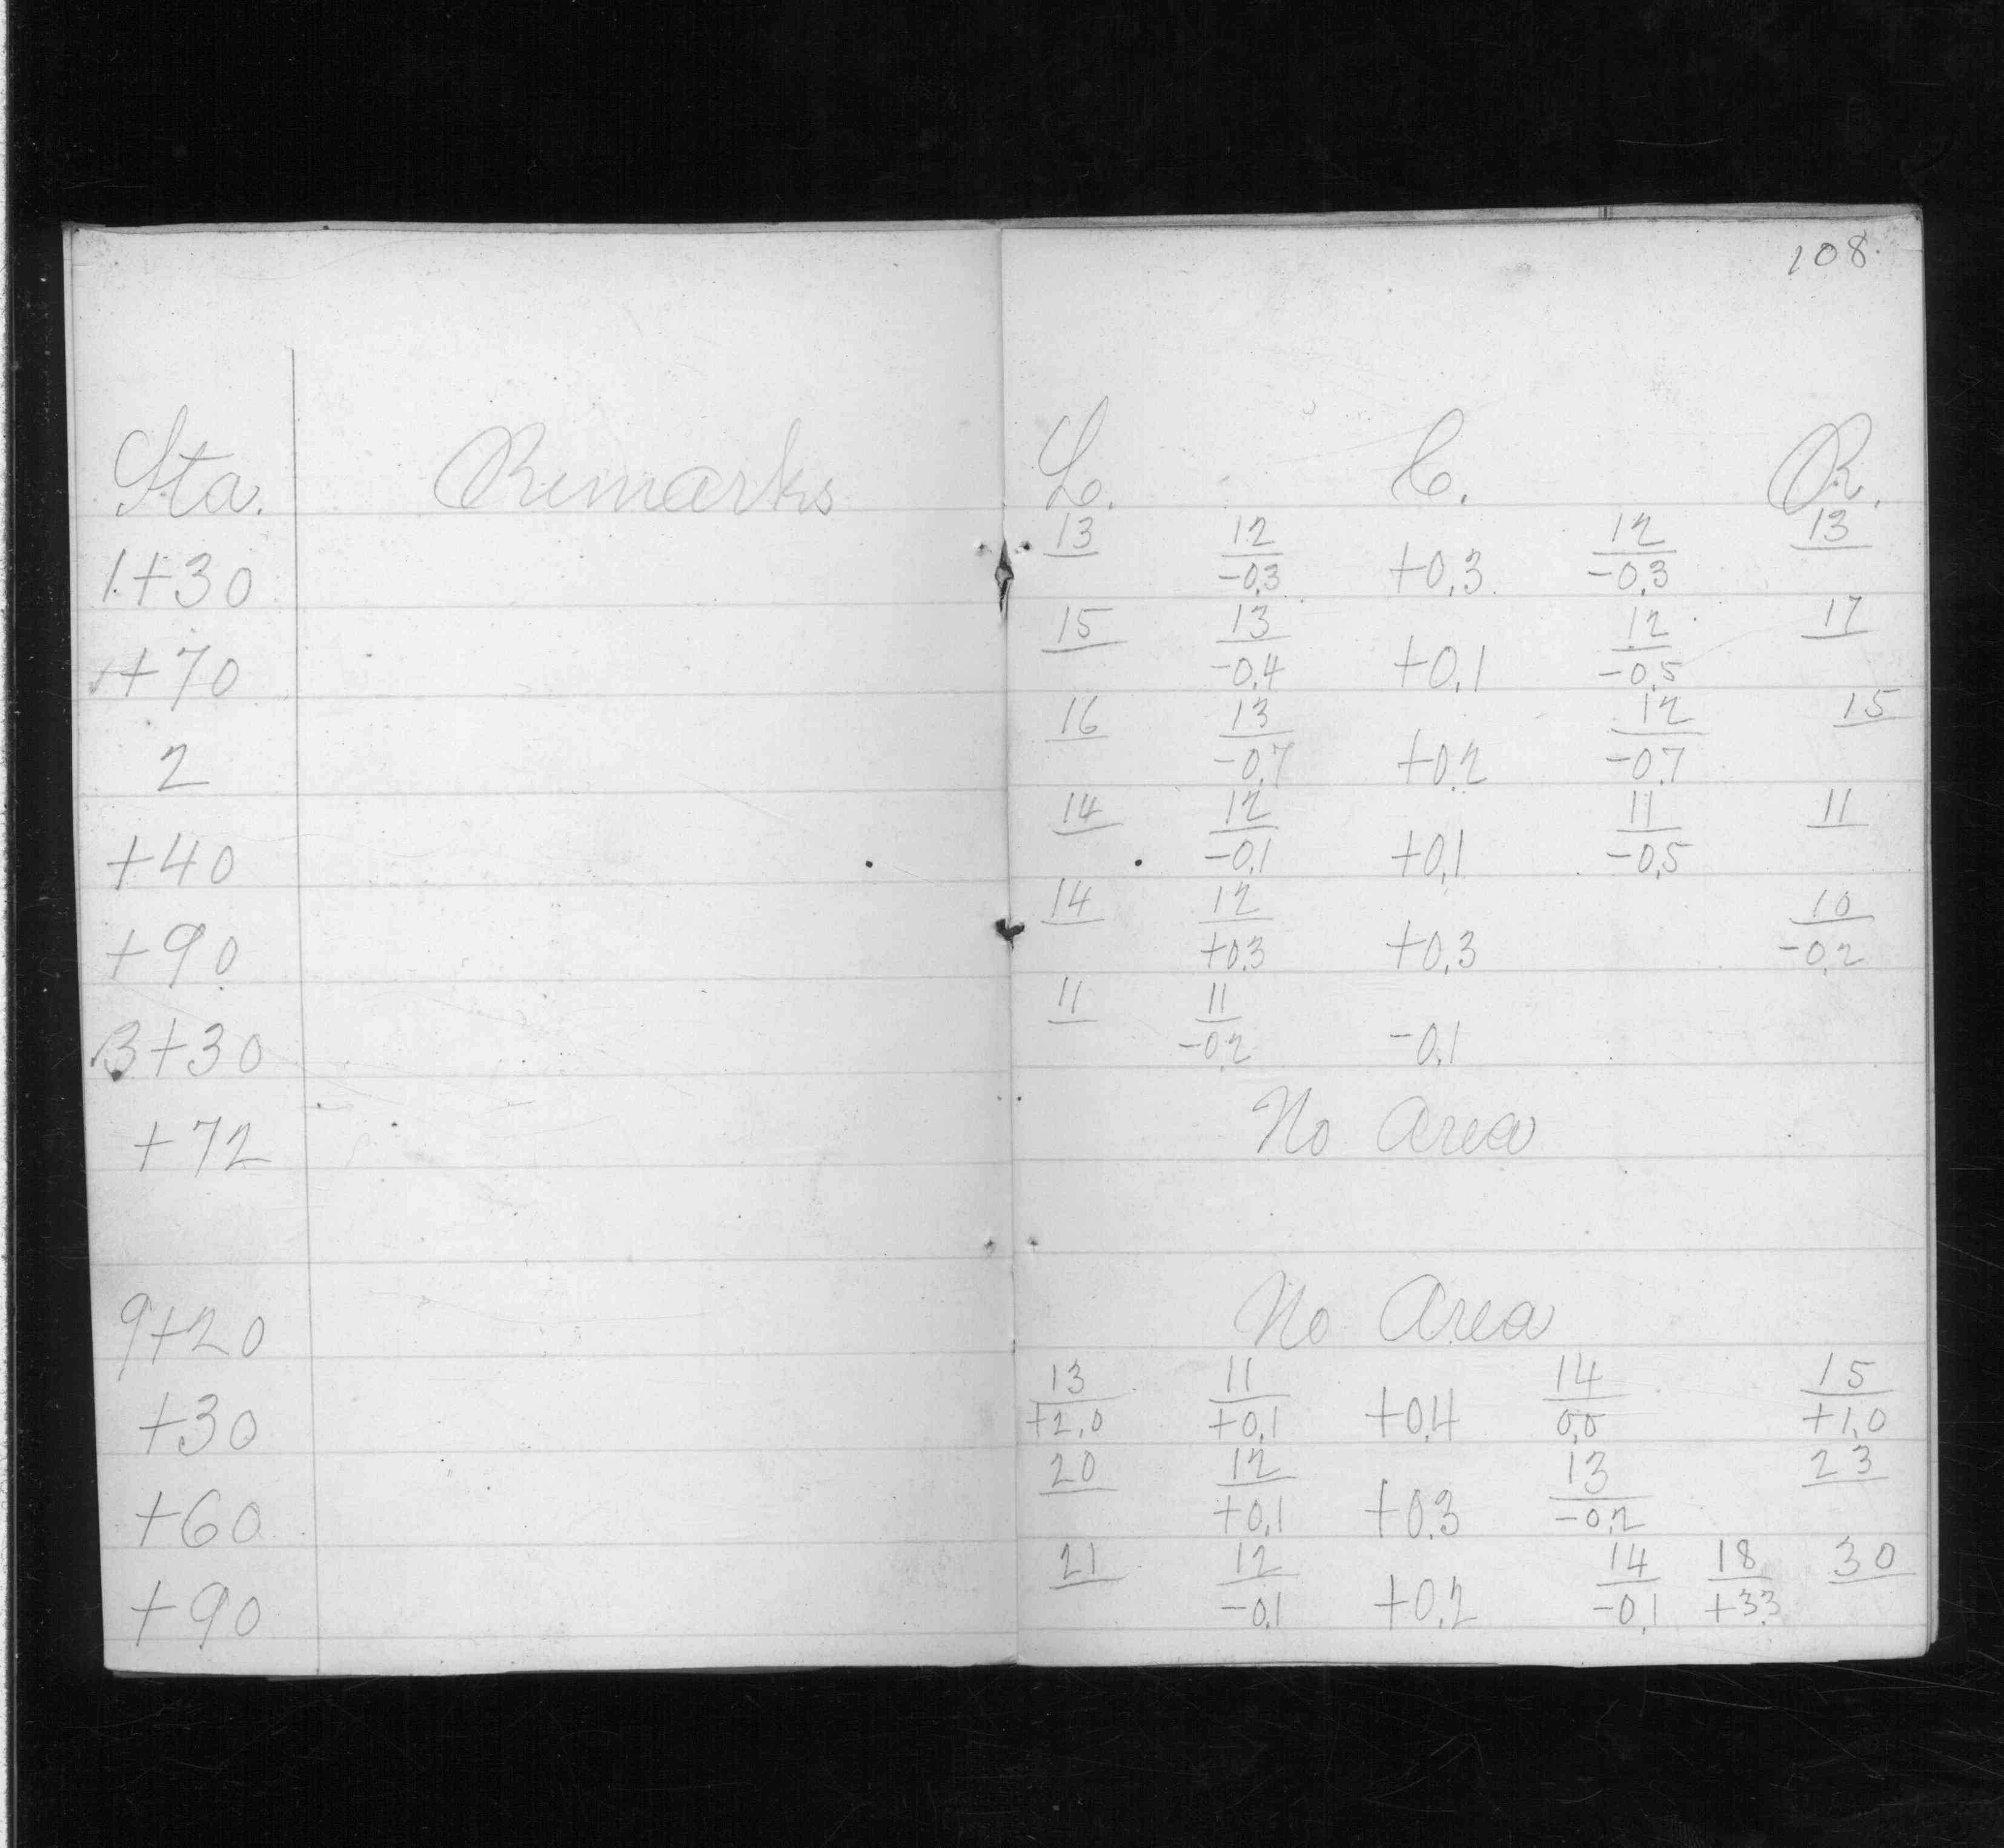 108.
Sta. Remarks L. C. R.
1+30 13 12/-0.3 +0.3 12/-0.3 13
+70 15 13/-0.4 +0.1 12/-0.5 17
2 16 13/-0.7 +0.2 12/-0.7 15
+40 14 12/-0.1 +0.1 11/-0.5 11
+90 14 12/+0.3 +0.3 10/-0.2
3+30 11 11/-0.2 -0.1
+72 No Area
9+20 No Area
+30 13/+2.0 11/+0.1 +0.4 14/0.0 15/+1.0
+60 20 12/+0.1 +0.3 13/-0.2 23
+90 21 12/-0.1 +0.2 14/-0.1 18/+3.3 30